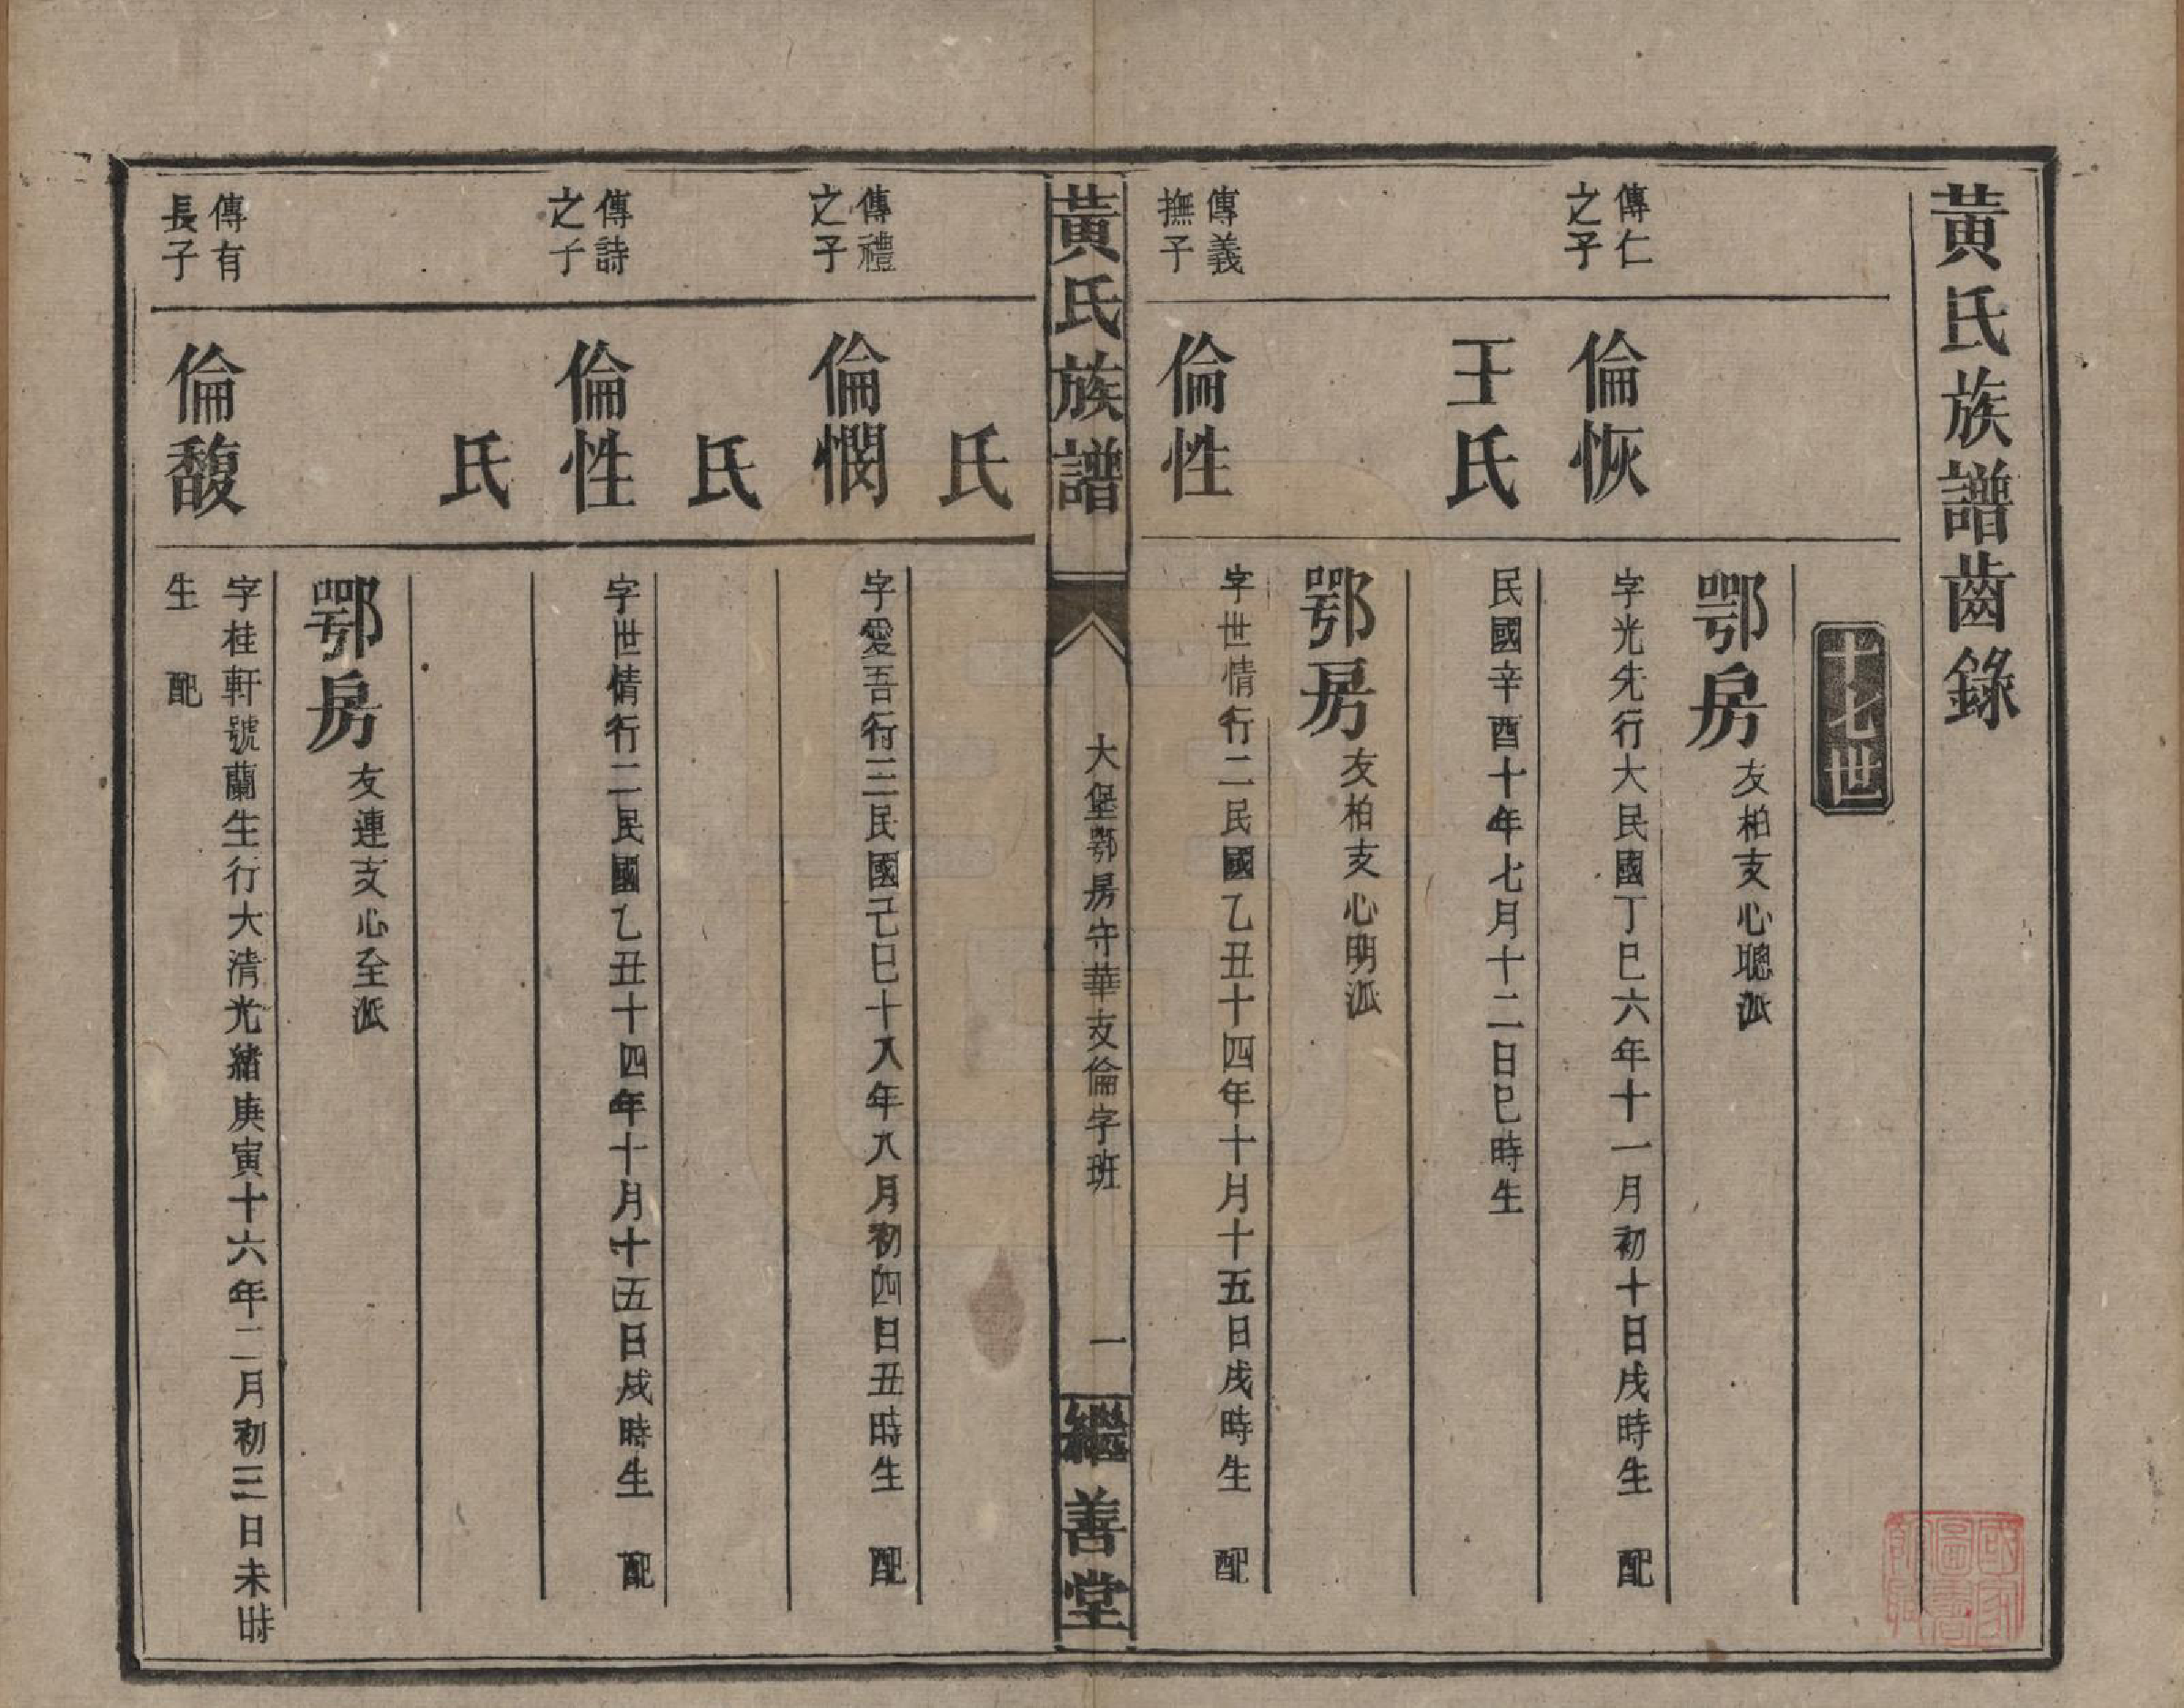 黃氏族譜齒錄
十七世
鄂房 友柏支心聰派
傳仁之子
倫恢
字光先行大民國丁巳六年十一月初十日戌時生 配
王氏
民國辛酉十年七月十二日巳時生
鄂房 友柏支心明派
傳義撫子
倫性
字世情行二民國乙丑十四年十月十五日戌時生 配
黃氏族譜
大堡鄂房守華支倫字班
一
繼善堂
氏
傳禮之子
倫憫
字愛吾行三民國己巳十八年八月初四日丑時生 配
氏
傳詩之子
倫性
字世情行二民國乙丑十四年十月十五日戌時生 配
氏
鄂房 友連支心至派
傳有長子
倫馥
字桂軒號蘭生行大清光緒庚寅十六年二月初三日未時
生 配
國家圖書館藏